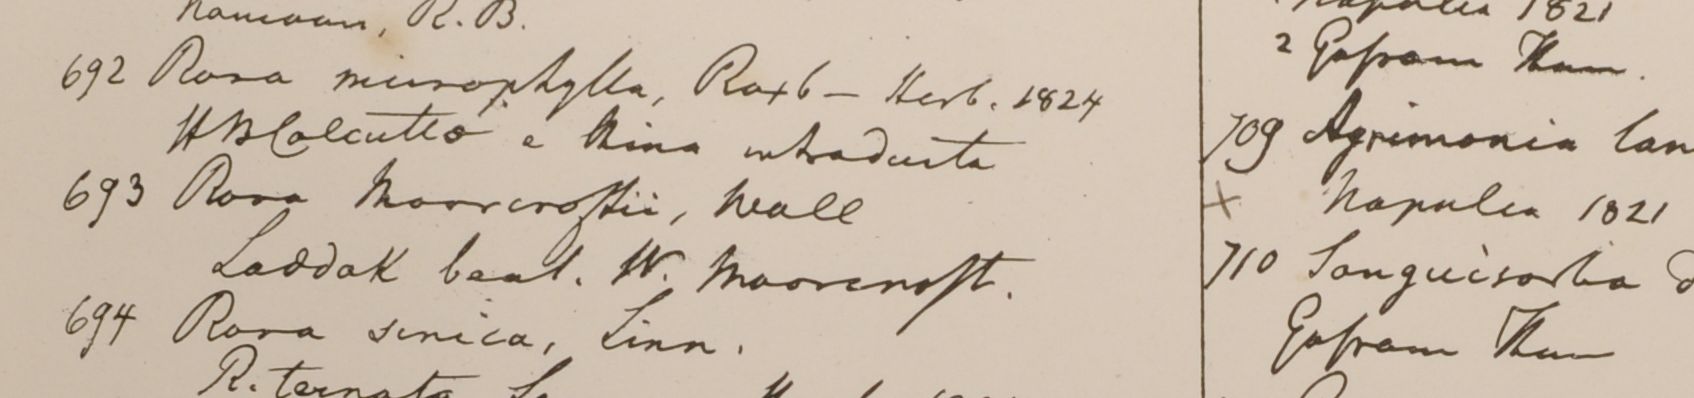 Kamaon, R.B.
692 Rosa microphylla, Roxb – Herb. 1824
HBCalcutta e China introducta
693 Rosa Moorcroftii, Wall
Laddak beat. W. Moorcroft.
694 Rosa sinica, Linn.
R. ternata
Napalia 1821
2 Gossam Than.
709 Agrimonia lan
× Napalia 1821
710 Sanguisorba d
Gossam Than